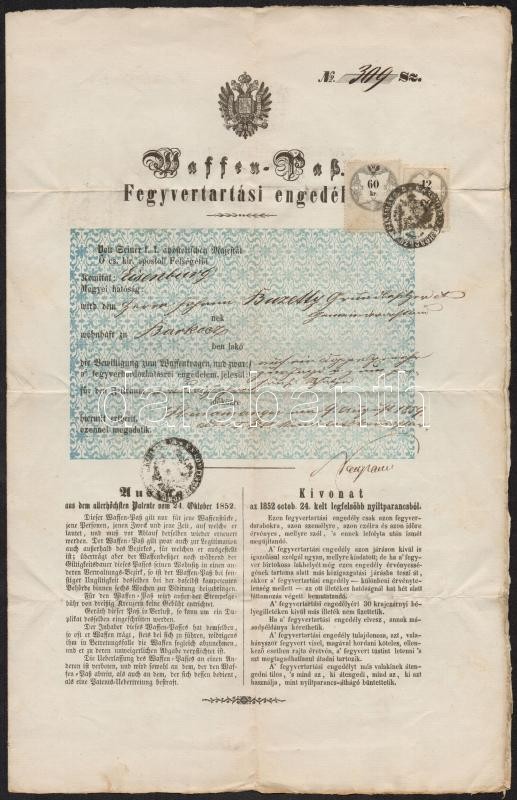 № 309 Sz.
Waffen-Paß.
Fegyvertartási engedél
60
kr.
12
Von Seiner k. k. apostolischen Majestät
Ő cs. kir. apostoli Felségétől
Komitat: Eisenburg
Megyei hatóság:
wird dem Herrn Johann Buzetty Grundbesitzer
nek
wohnhaft zu
ben lakó
die Bewilligung zum Waffentragen, und zwar
a' fegyverhordozhatási engedelem, jelesül
für den Zeitraum
hiermit ertheilt.
ezennel megadatik.
darabanth
Auszug
aus dem allerhöchsten Patente vom 24. Oktober 1852.
Dieser Waffen-Paß gilt nur für jene Waffenstücke,
jene Personen, jenen Zweck und jene Zeit, auf welche er
lautet, und muß vor Ablauf derselben wieder erneuert
werden. Der Waffen-Paß gilt zwar auch zur Legitimation
auch außerhalb des Bezirkes, für welchen er ausgestellt
ist; überträgt aber der Waffenbesitzer noch während der
Giltigkeitsdauer dieses Passes seinen Wohnsitz in einen an-
deren Verwaltungs-Bezirk, so ist der Waffen-Paß bei son-
stiger Ungiltigkeit desselben bei der daselbst kompetenten
Behörde binnen sechs Wochen zur Vidirung beizubringen.
Für den Waffen-Paß wird außer der Stempelge-
bühr von dreißig Kreuzern keine Gebühr entrichtet.
Geht dieser Paß in Verlust, so kann um ein Du-
plikat desselben eingeschritten werden.
Der Inhaber dieses Waffen-Passes hat denselben,
so oft er Waffen trägt, stets bei sich zu führen, widrigens
ihm in Betretungsfalle die Waffen sogleich abzunehmen,
und er zu deren unweigerlichen Abgabe verpflichtet ist.
Die Ueberlassung des Waffen-Passes an einen An-
deren ist verboten, und wird sowohl an dem, der den Waf-
fen-Paß abtritt, als auch an dem, der sich dessen bedient,
als eine Patents-Uebertretung bestraft.
Kivonat
az 1852 octob. 24. kelt legfelsőbb nyiltparancsból.
Ezen fegyvertartási engedély csak azon fegyver-
darabokra, azon személyre, azon czélra és azon időre
érvényes, mellyre szól, 's ennek lefolyta után ismét
megujítandó.
A' fegyvertartási engedély azon járáson kivül is
igazolásul szolgál ugyan, mellyre kiadatott; de ha a' fegy-
ver birtokosa lakhelyét még ezen engedély érvényessé-
gének tartama alatt más közigazgatási járásba teszi át,
akkor a' fegyvertartási engedély — különbeni érvényte-
lenség mellett — az ott illetékes hatóságnál hat hét alatt
láttamozás végett bemutatandó.
A' fegyvertartási engedélyért 30 krajczárnyi bé-
lyegilletéken kivül más illeték nem fizettetik.
Ha a' fegyvertartási engedély elvesz, annak má-
sodpéldánya kérethetik.
A' fegyvertartási engedély tulajdonosa, azt, vala-
hányszor fegyvert visel, magával hordani köteles, ellen-
kező esetben rajta éretvén, a' fegyvert tüstint letenni
's azt megtagadhatlanul átadni tartozik.
A' fegyvertartási engedélyt más valakinek átenge-
dni tilos, 's mind az, ki átengedi, mind az, ki azt
használja, mint nyiltparancs-áthágó büntettetik.